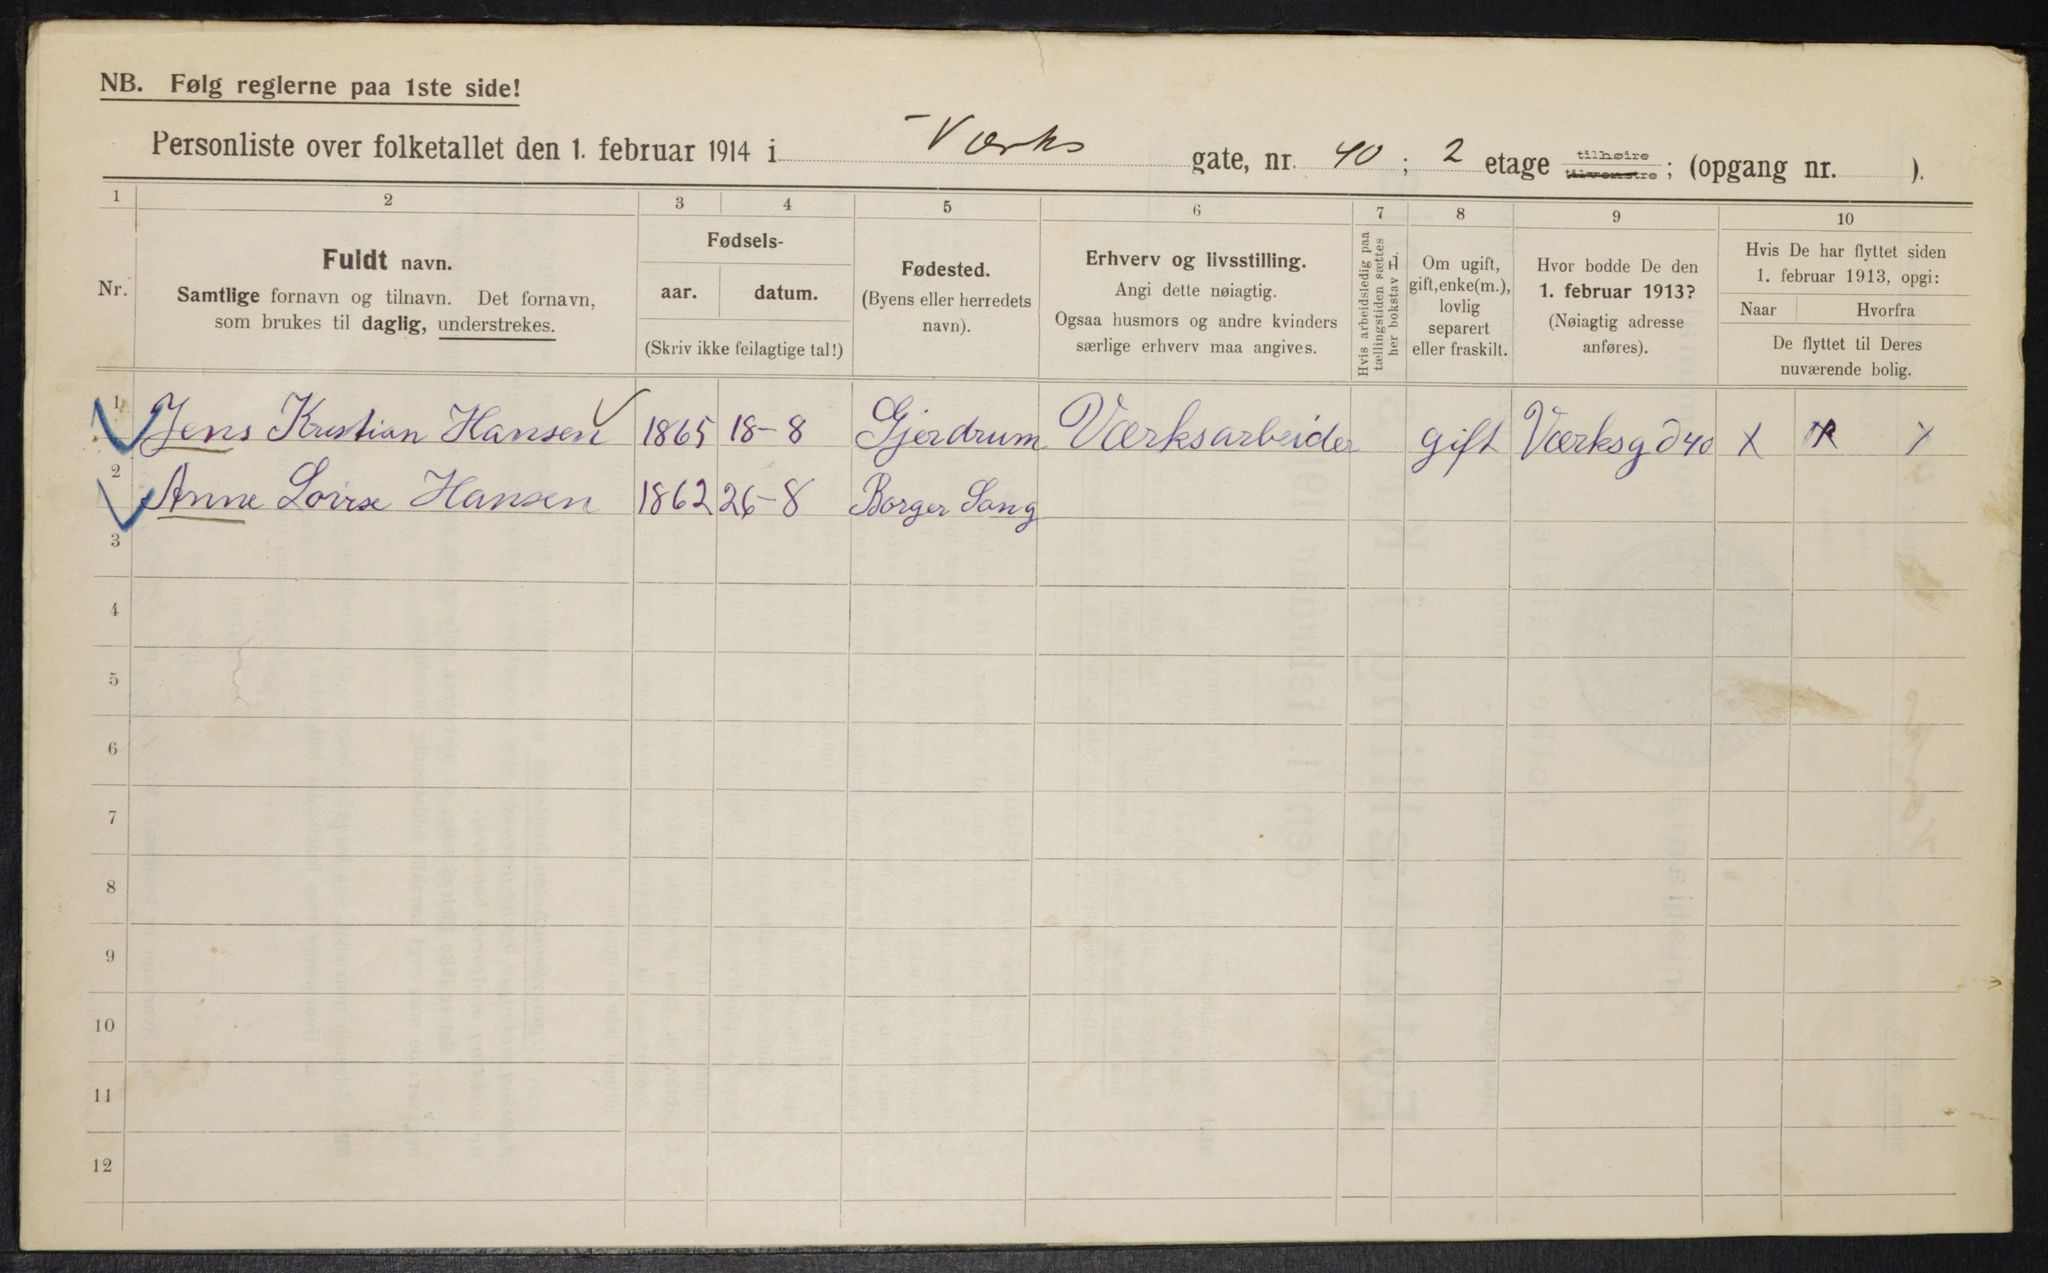 NB. Følg reglerne paa 1ste side!
Personliste over folketallet den 1. februar 1914 i Værks gate, nr. 40; 2 etage tilhøire tilvenstre; (opgang nr. ).
1 2 3 4 5 6 7 8 9 10
Nr.
Fuldt navn.
Samtlige fornavn og tilnavn. Det fornavn,
som brukes til daglig, understrekes.
Fødsels-
aar. datum.
(Skriv ikke feilagtige tal!)
Fødested.
(Byens eller herredets
navn).
Erhverv og livsstilling.
Angi dette nøiagtig.
Ogsaa husmors og andre kvinders
særlige erhverv maa angives.
Hvis arbeidsledig paa
tællingstiden sættes
her bokstav L.
Om ugift,
gift, enke(m.),
lovlig
separert
eller fraskilt.
Hvor bodde De den
1. februar 1913?
(Nøiagtig adresse
anføres).
Hvis De har flyttet siden
1. februar 1913, opgi:
Naar Hvorfra
De flyttet til Deres
nuværende bolig.
1 Jens Kristian Hansen 1865 18-8 Gjerdrum Værksarbeider gift Værksgd 40 X X
2 Anne Lovise Hansen 1862 26-8 Borger Sang
3
4
5
6
7
8
9
10
11
12